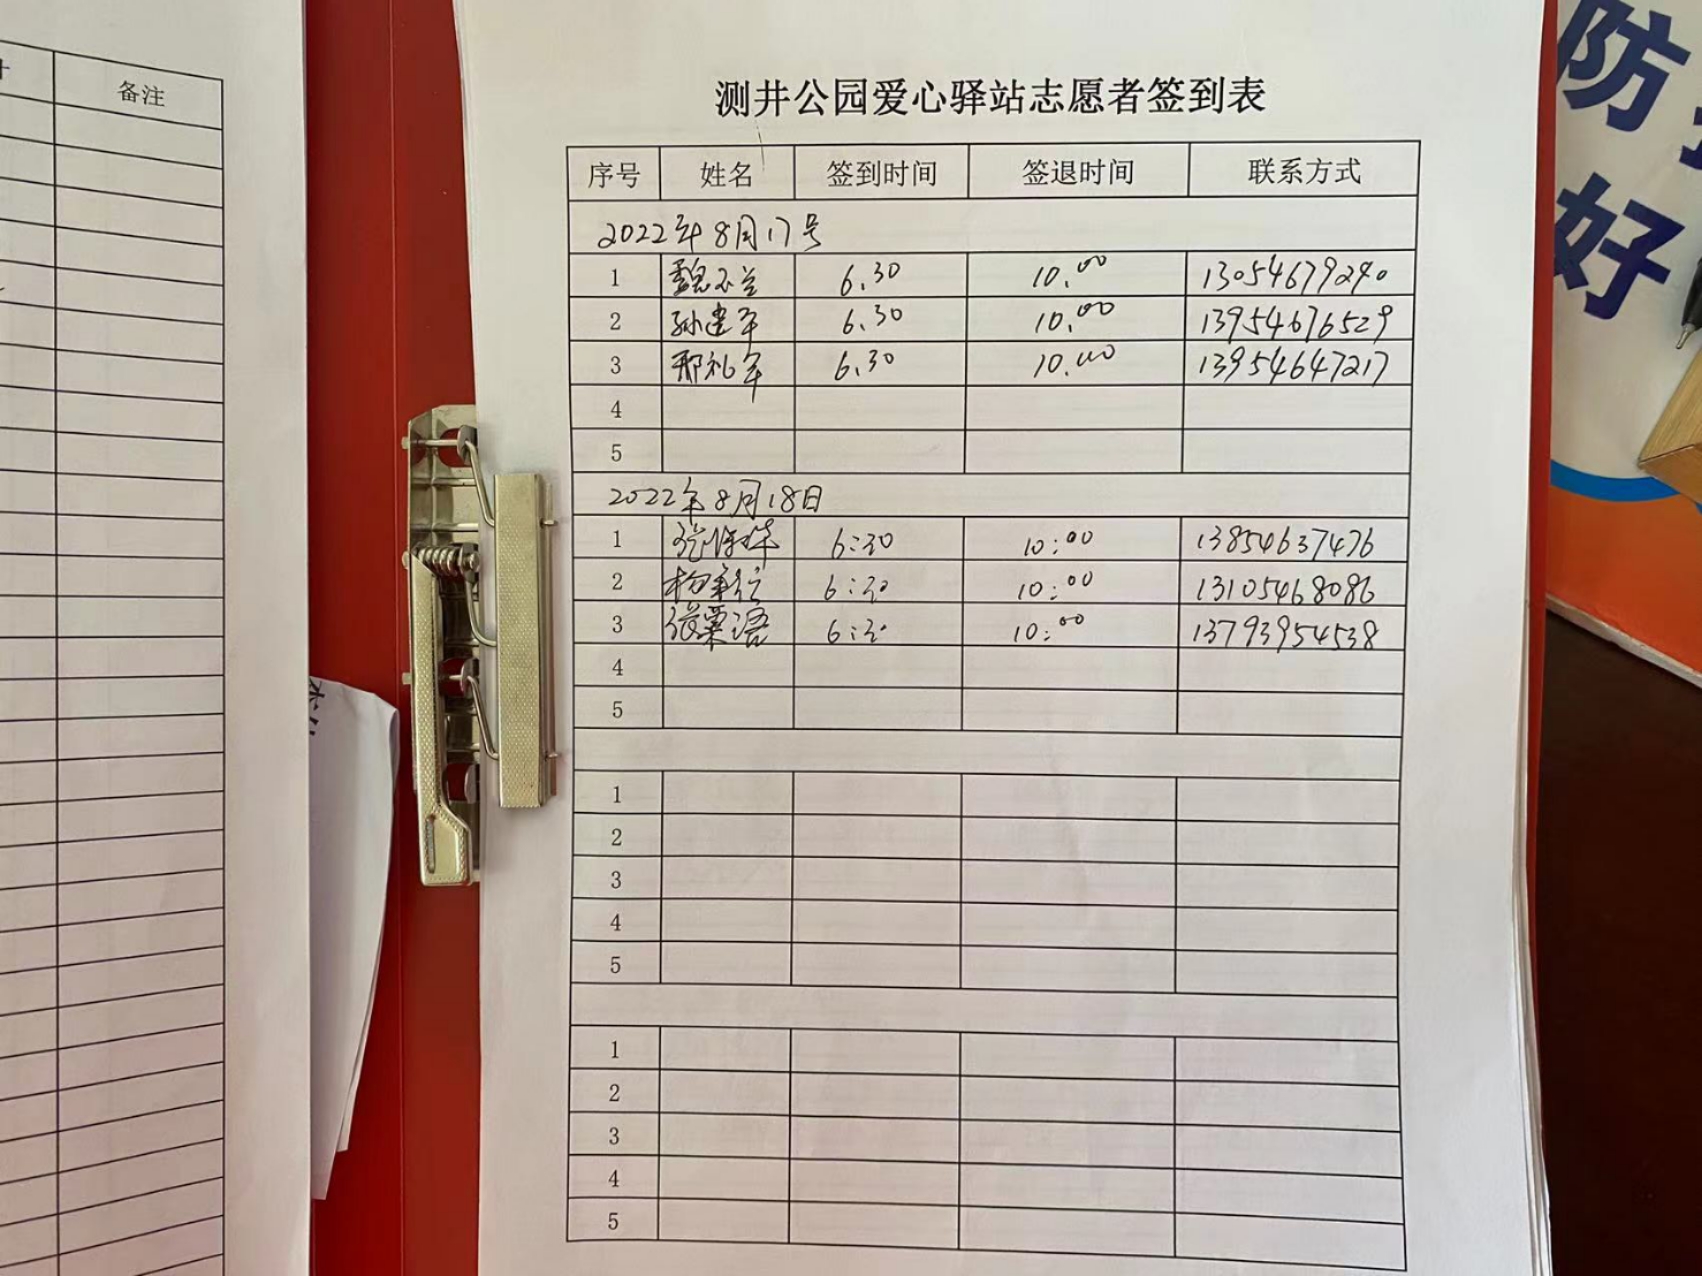 备注
测井公园爱心驿站志愿者签到表
序号 姓名 签到时间 签退时间 联系方式
2022年8月17号
1 魏不兰 6.30 10.00 13054679290
2 孙建军 6.30 10.00 13954676529
3 邢礼军 6.30 10.00 13954647217
4
5
2022年8月18日
1 6:30 10:00 13854637476
2 6:30 10:00 13105468086
3 张粟语 6:30 10:00 13793954538
4
5
1
2
3
4
5
1
2
3
4
5
防
好